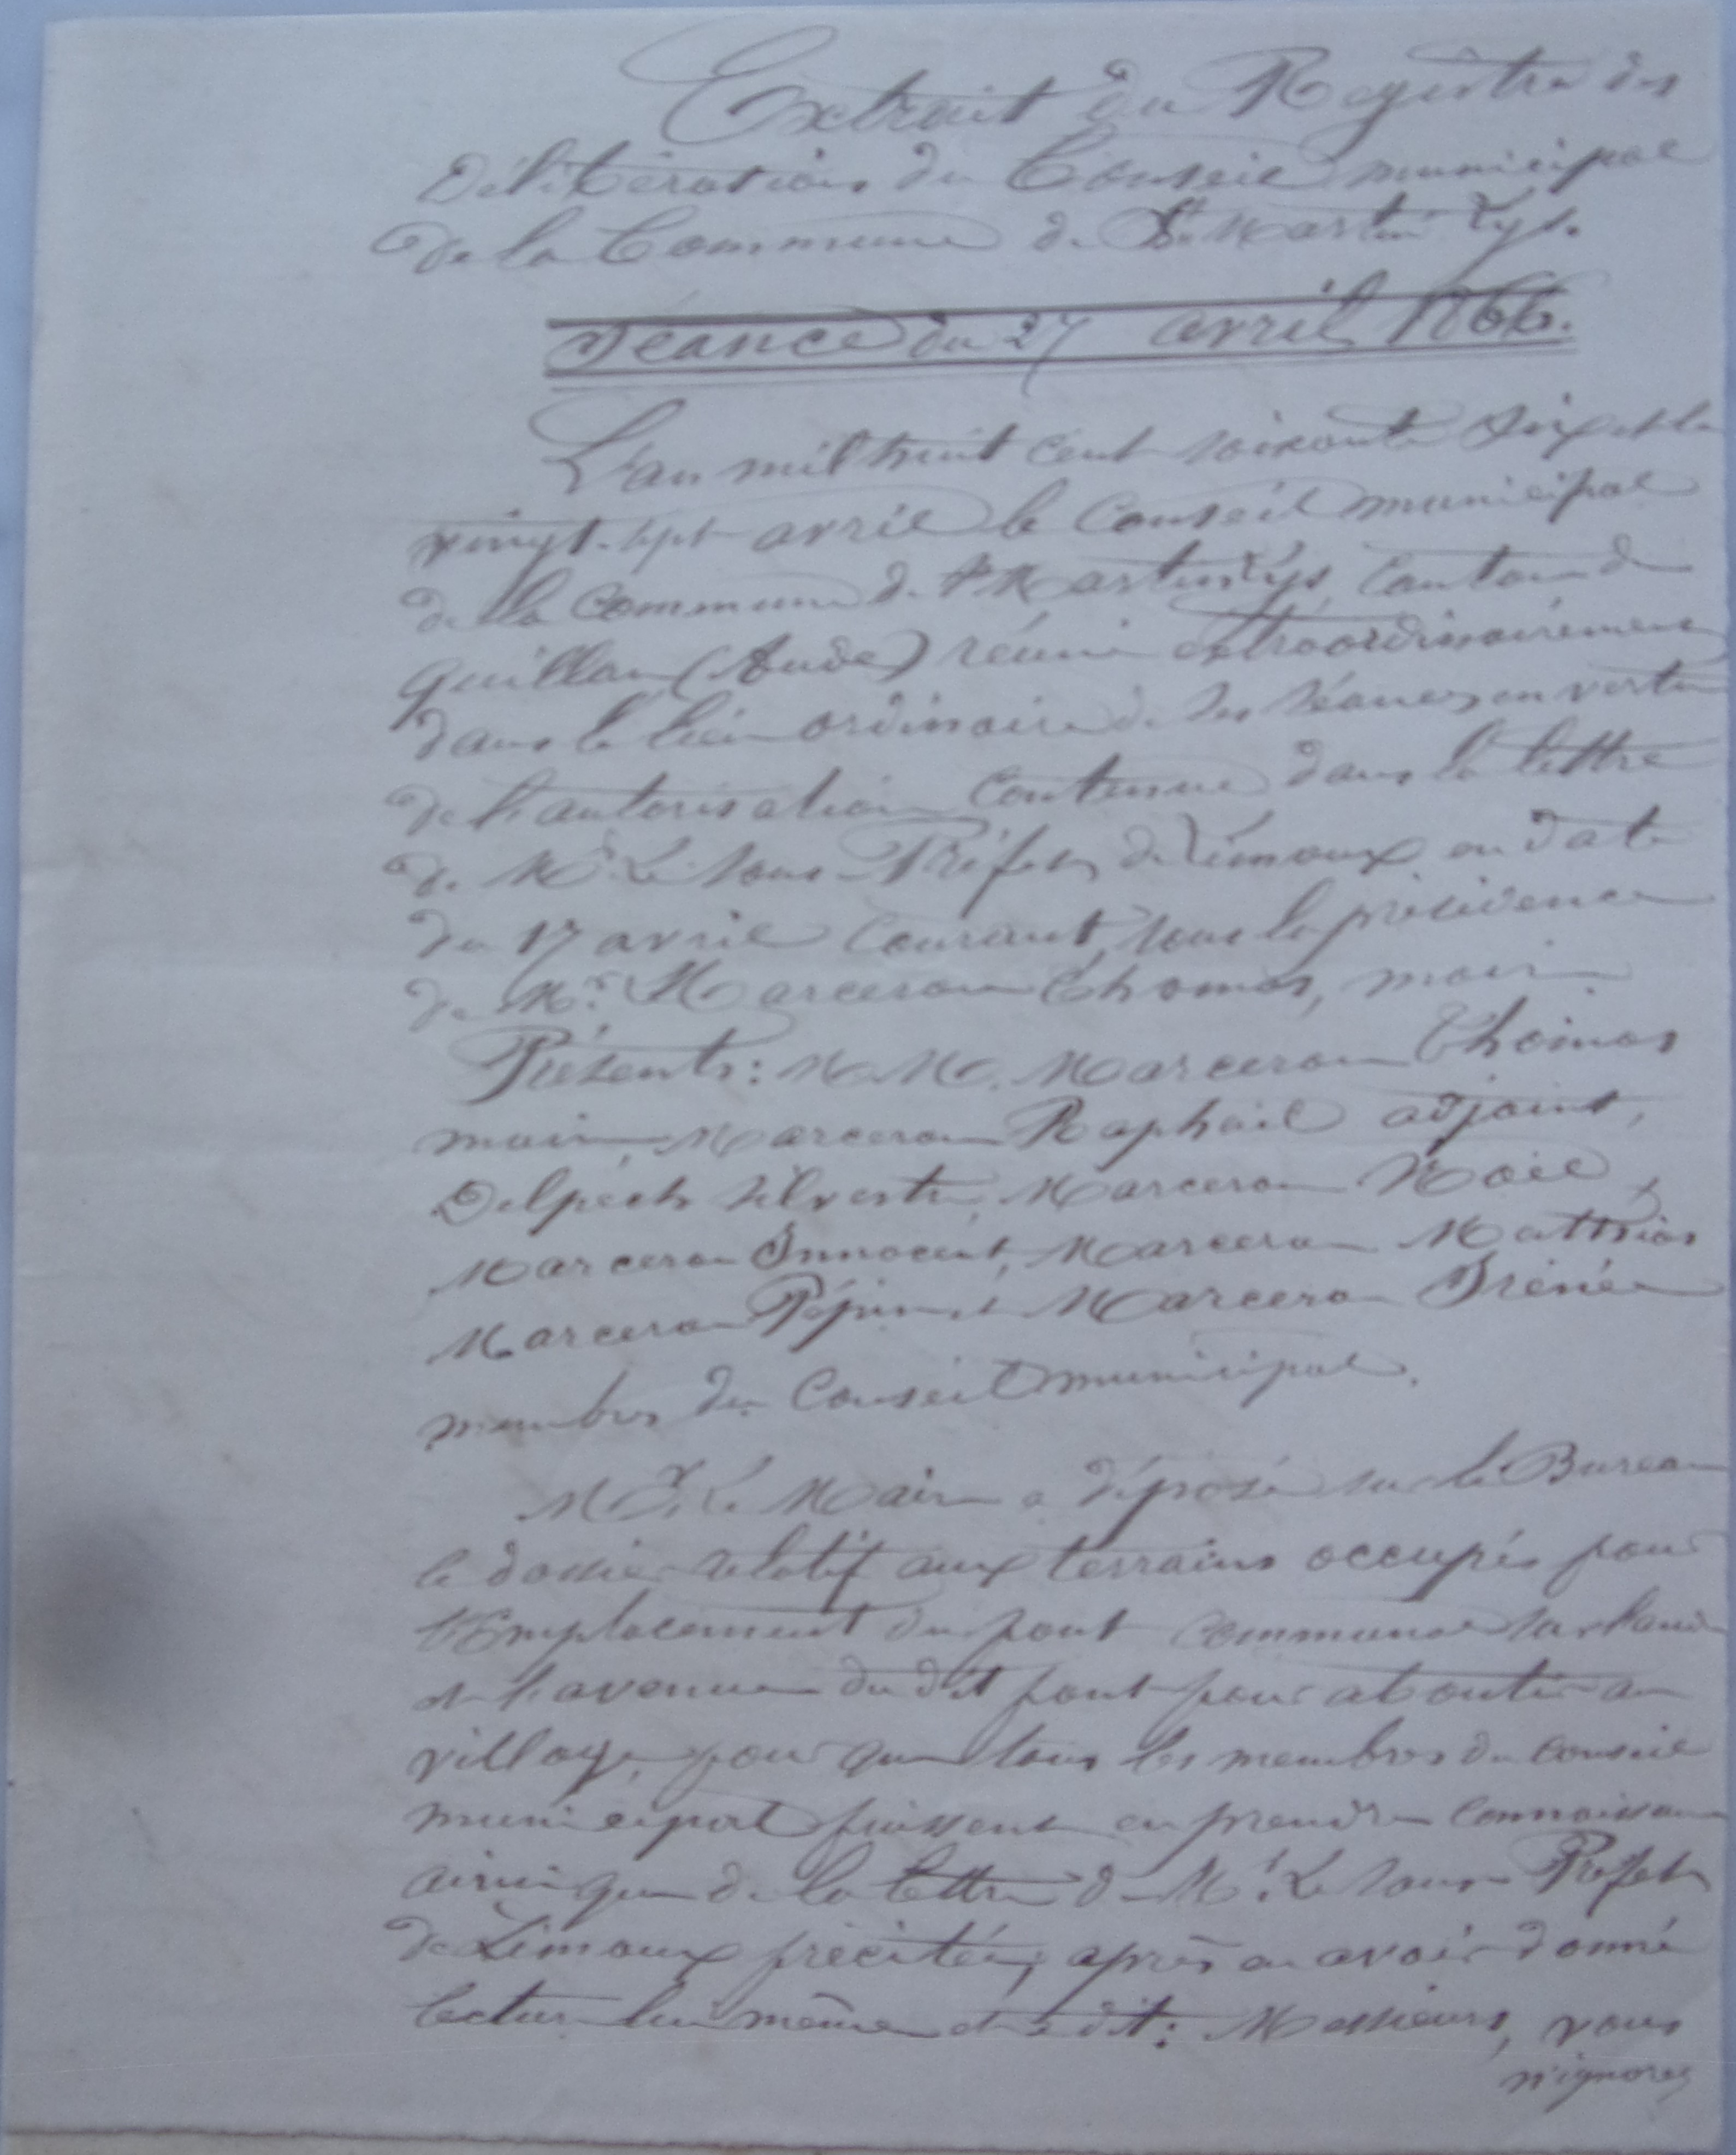 Extrait du Régistre des
Délibérations du Conseil municipal
de la Commune de St Martin Lys.
Séance du 27 avril 1866.
L'an mil huit cent soixante six et le
vingt-sept avril le Conseil municipal
de la Commune de St Martin Lys, Canton de
Quillan (Aude) réuni extraordinairement
dans le lieu ordinaire de ses séances en vertu
de l'autorisation contenue dans la lettre
de Mr Le Sous-Préfet de Limoux en date
du 17 avril Courant, sous la présidence
de Mr. Marceron Thomas, maire
Présents: M.M. Marceron Thomas
maire, Marceron Raphaël adjoint,
Delpech Silvestre, Marceron Noël,
Marceron Innocent, Marceron Matthias
Marceron Pépin et Marceron Irénée
membres du Conseil municipal.
Mr. Le Maire a déposé sur le Bureau
le dossier relatif aux terrains occupés pour
l'Emplacement du pont communal sur l'aude
et l'avenue du dit pont pour aboutir au
village, pour que tous les membres du conseil
municipal puissent en prendre connaissance
ainsi que de la lettre de Mr. Le Sous-Préfet
de Limoux précitée, après en avoir donné
lecture lui même et a dit: Messieurs, vous
n'ignorez